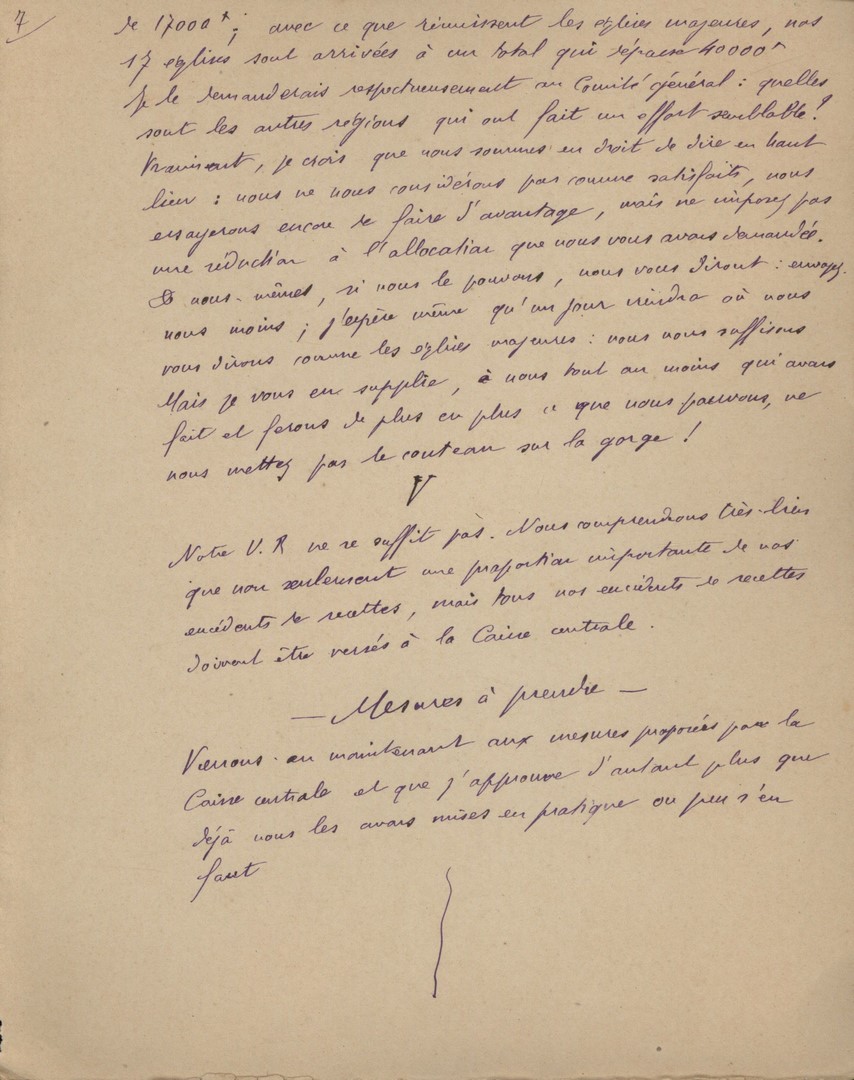 7
de 17000 f; avec ce que réunissent les églises majeures, nos
17 églises sont arrivées à un total qui dépasse 40000 f
Je le demanderais respectueusement au Comité général : quelles
sont les autres régions qui ont fait un effort semblable ?
Vraiment, je crois que nous sommes en droit de dire en haut
lieu : nous ne nous considérons pas comme satisfaits, nous
essayerons encore de faire d'avantage, mais ne imposez pas
une réduction à l'allocation que nous vous avons demandée.
nous-mêmes, si nous le pouvons, nous vous diront : envoyez
nous moins ; j'espère même qu'un jour viendra où nous
vous dirons comme les églises majeures : nous nous suffisons
Mais je vous en supplie, à nous tout au moins qui avons
fait et ferons de plus en plus ce que nous pouvons, ne
nous mettez pas le couteau sur la gorge !
V
Notre U.R ne se suffit pas. Nous comprendrons très-bien
que non seulement une proportion importante de nos
excédents de recettes, mais tous nos excédents de recettes
doivent être versés à la Caisse centrale.
— Mesures à prendre —
Venons-en maintenant aux mesures proposées par la
Caisse centrale et que j'approuve d'autant plus que
déjà nous les avons mises en pratique ou peu s'en
faut